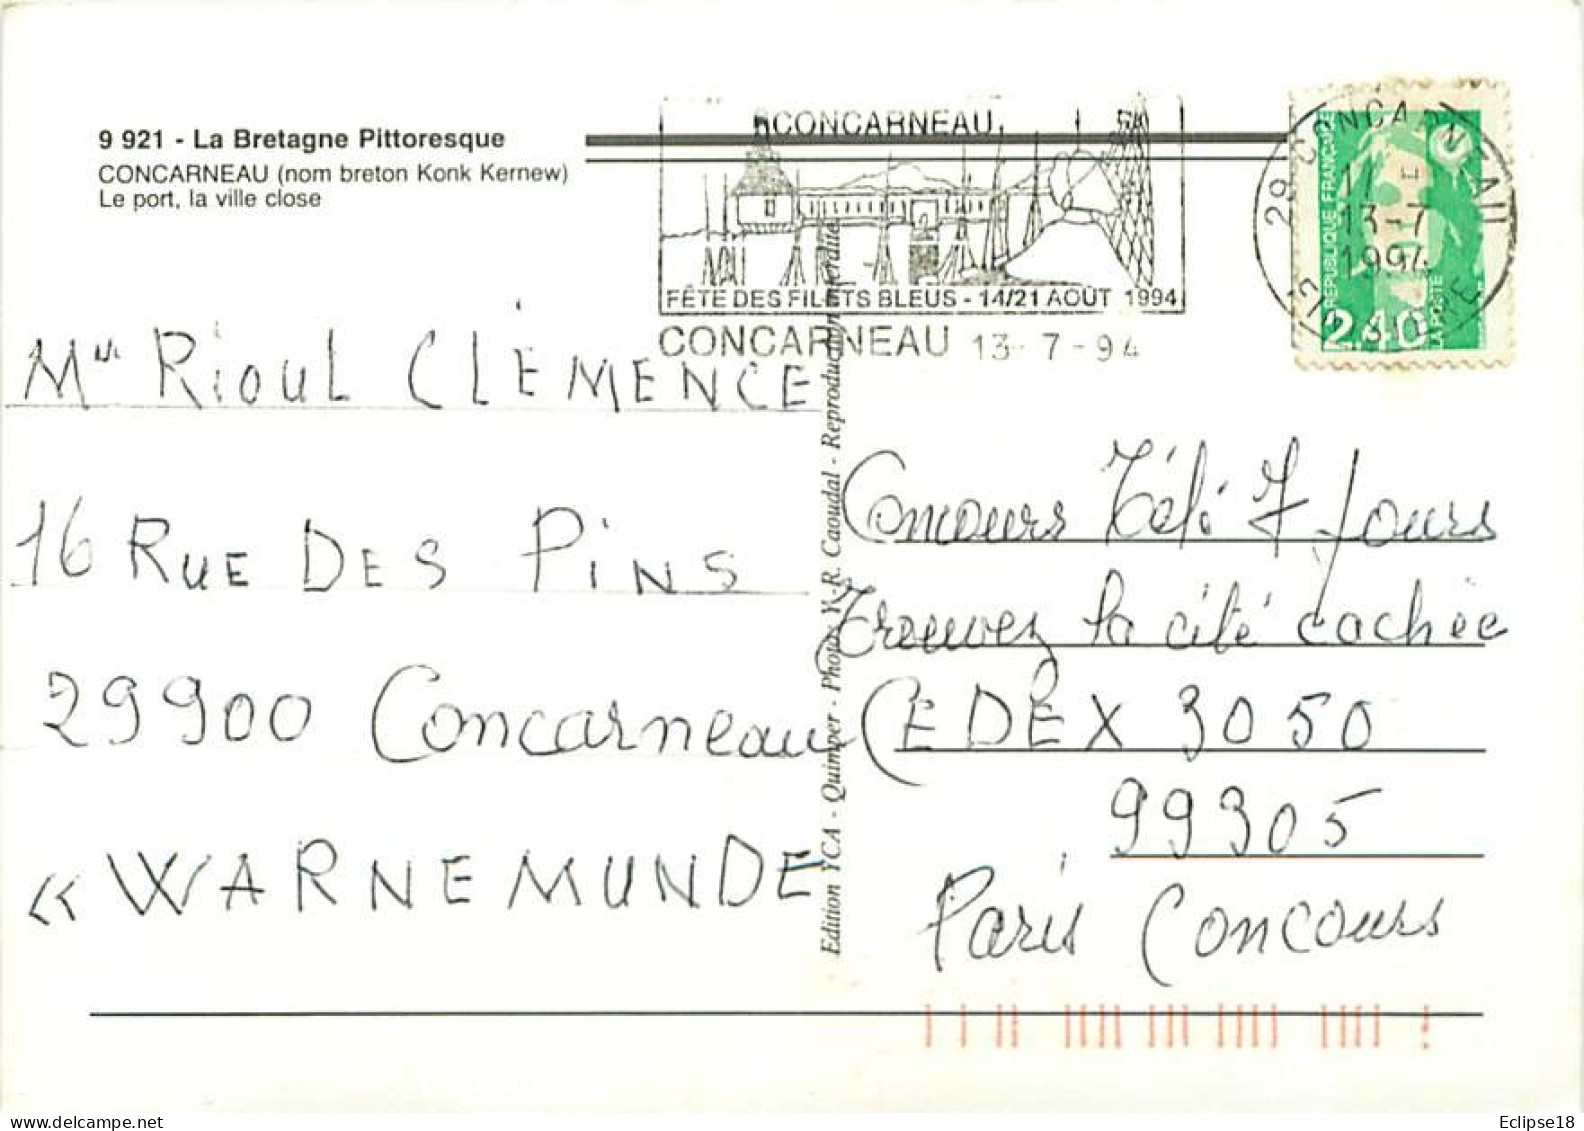 9 921 - La Bretagne Pittoresque
CONCARNEAU (nom breton Konk Kernew)
Le port, la ville close
CONCARNEAU
FÊTE DES FILETS BLEUS - 14/21 AOÛT 1994
CONCARNEAU 13-7-94
29 CONCARNEAU
13-7
1994
FINISTERE
REPUBLIQUE FRANÇAISE
2,40
LA POSTE
Mlle RiOUL CLÉMENCE
16 RUE DES PiNS
29900 Concarneau
« WARNEMUNDE
Edition YCA - Quimper - Photos Y.-R. Caoudal - Reproduction interdite
Concours Télé 7 Jours
Trouvez la cité cachée
CEDEX 3050
99305
Paris Concours
Eclipse18